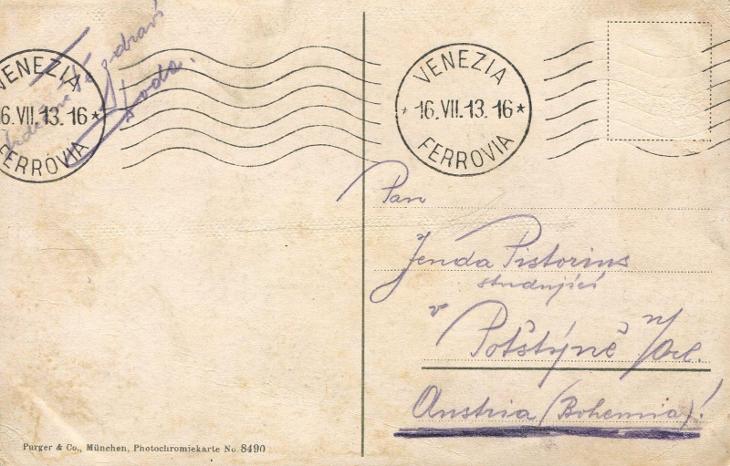 VENEZIA
16.VII.13.16*
FERROVIA
zdraví
VENEZIA
·16.VII.13.16*
FERROVIA
Pan
Jenda Pistorius
studující
v Potštýně n/Orl.
Austria (Bohemia)!
Purger & Co., München, Photochromiekarte No. 8490